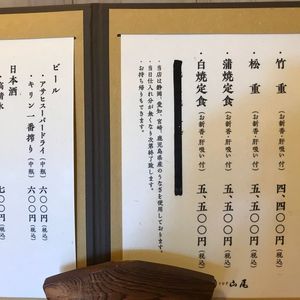 ・竹重(お新香・肝吸い付) 四、四〇〇円(税込)
・松重(お新香・肝吸い付) 五、五〇〇円(税込)
・蒲焼定食(お新香・肝吸い付) 五、五〇〇円(税込)
・白焼定食(お新香・肝吸い付) 五、五〇〇円(税込)
・当店は静岡、愛知、宮崎、鹿児島県産のうなぎを使用しております。
・当日仕入れ分が無くなり次第終了致します。
・お持ち帰りもできます。
山尾
ビール
・アサヒスーパードライ(中瓶) 六〇〇円(税込)
・キリン一番搾り(中瓶) 六〇〇円(税込)
日本酒
・高清水 七〇〇円(税込)